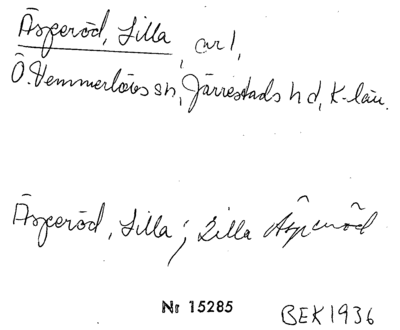 Äsperöd, Lilla, arl,
Ö. Vemmerlövs sn, Järrestads hd, K-län.
Äsperöd, Lilla; Lilla Äsperöd
Nr 15285
BEK1936